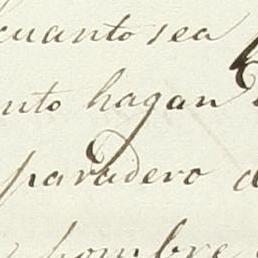 cuanto sea
nto hagan
paradero d
hombre